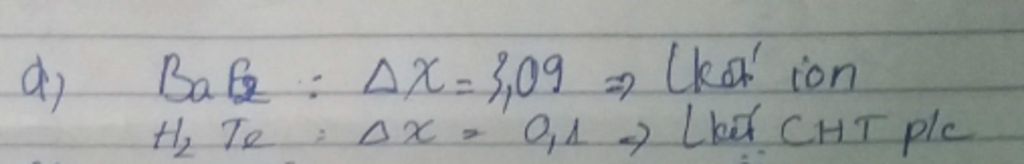 d) BaF2 : ΔX = 3,09 => Lkết ion
H2 Te : ΔX = 0,1 => Lkết CHT p/c